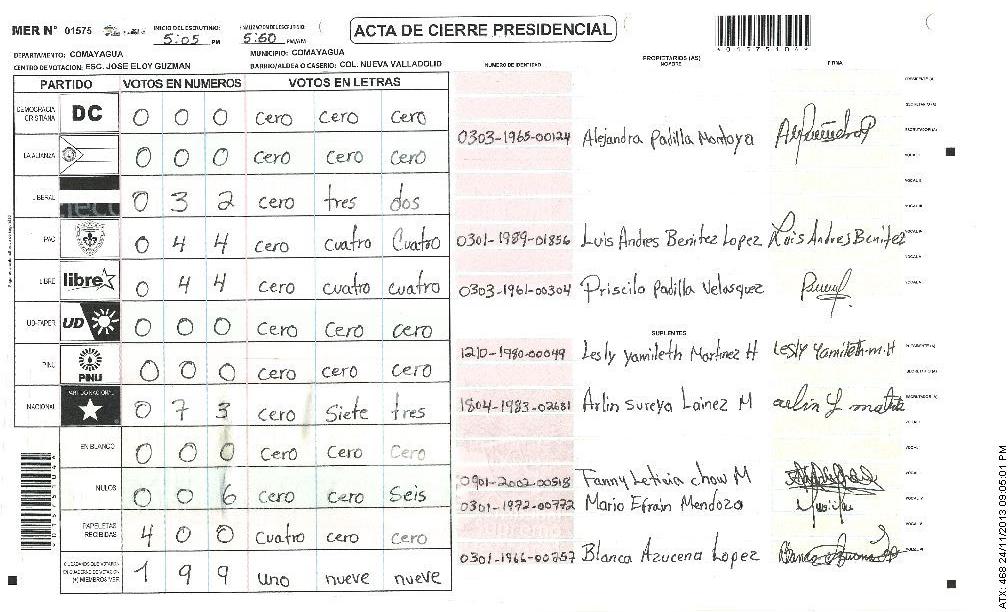 MER Nº 01575
INICIO DEL ESCRUTINIO: 5:05 PM
5:60 PM/AM
ACTA DE CIERRE PRESIDENCIAL
DEPARTAMENTO: COMAYAGUA
MUNICIPIO: COMAYAGUA
CENTRO DE VOTACION: ESC. JOSE ELOY GUZMAN
BARRIO/ALDEA O CASERIO: COL. NUEVA VALLADOLID
NUMERO DE IDENTIDAD
PROPIETARIOS (AS)
NOMBRE
FIRMA
PARTIDO VOTOS EN NUMEROS VOTOS EN LETRAS
DEMOCRACIA CRISTIANA DC 0 0 0 cero cero cero
LA ALIANZA 0 0 0 cero cero cero
LIBERAL 0 3 2 cero tres dos
PAC 0 4 4 cero cuatro Cuatro
LIBRE libre 0 4 4 cero cuatro cuatro
UD-FAPER UD 0 0 0 cero cero cero
PINU PINU 0 0 0 cero cero cero
NACIONAL PARTIDO NACIONAL 0 7 3 cero Siete tres
EN BLANCO 0 0 0 cero cero cero
NULOS 0 0 6 cero cero Seis
PAPELETAS RECIBIDAS 4 0 0 cuatro cero cero
CIUDADANOS QUE VOTARON EN CUADERNO DE VOTACION (+) MIEMBROS MER 1 9 9 uno nueve nueve
0303-1965-00124 Alejandra Padilla Montoya
0301-1989-01856 Luis Andres Benitez Lopez Luis Andres Benitez
0303-1961-00304 Priscila Padilla Velasquez
SUPLENTES
1210-1980-00049 Lesly Yamileth Martinez H Lesly Yamileth M.H
1804-1983-02681 Arlin Sureya Lainez M
0901-2002-00518 Fanny Leticia Chow M
0301-1972-00772 Mario Efrain Mendoza
0301-1966-00757 Blanca Azucena Lopez
ATX: 468 24/11/2013 09:05:01 PM